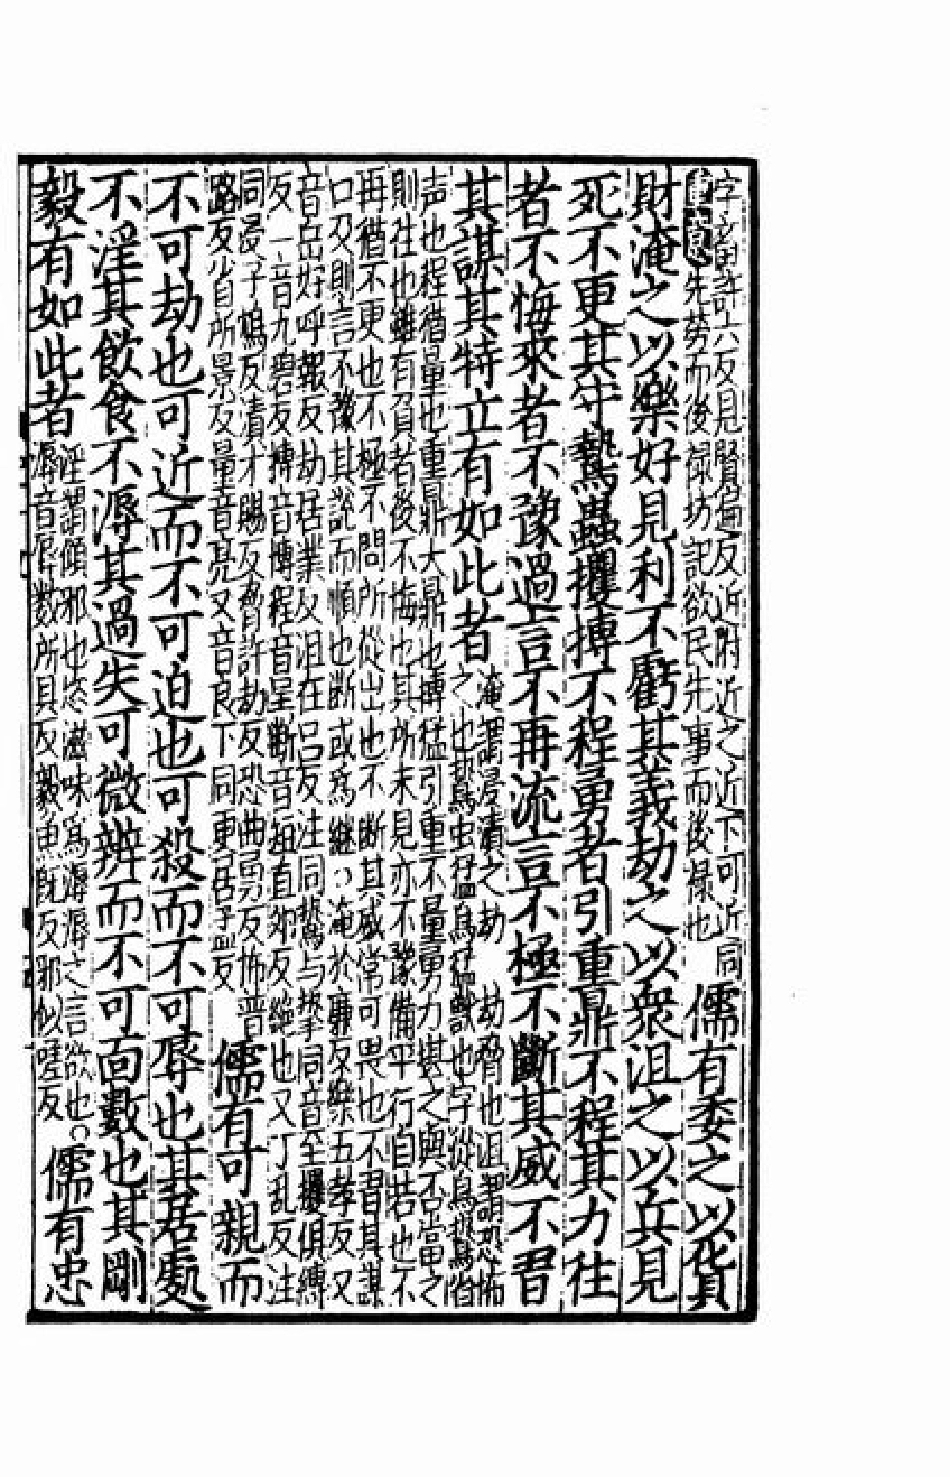 字畜許六反見賢徧反近附近之近下可近同
重意先勞而後禄坊記欲民先事而後祿也
儒有委之以貨
財淹之以樂好見利不虧其義劫之以衆沮之以兵見
死不更其守鷙蟲攫搏不程勇者引重鼎不程其力往
者不悔來者不豫過言不再流言不極不斷其威不習
其謀其特立有如此者
淹謂浸漬之劫 劫脅也沮謂恐怖
之也鷙虫猛鳥猛獸也字從鳥鷙省
声也程猶量也重鼎大鼎也搏猛引重不量勇力堪之與否當之
則往也雖有負者後不悔也其所未見亦不豫備平行自若也不
再猶不更也不極不問所從出也不斷其威常可畏也不習其謀
口及則言不豫其說而順也斷或爲継○淹於廉反樂五孝反又
音岳好呼報反劫居業反沮在呂反注同鷙与摯同音至攫俱縛
反一音九碧反搏音博程音呈斷音短直卵反絶也又丁乱反注
同浸子鴆反漬才賜反脅許劫反恐曲勇反怖普
路反省所景反量音亮又音良下同更居孟反
儒有可親而
不可劫也可近而不可迫也可殺而不可辱也其居處
不淫其飲食不溽其過失可微辨而不可面數也其剛
毅有如此者
淫謂傾邪也恣滋味爲溽溽之言欲也○
溽音辱數所具反毅魚旣反邪似嗟反
儒有忠